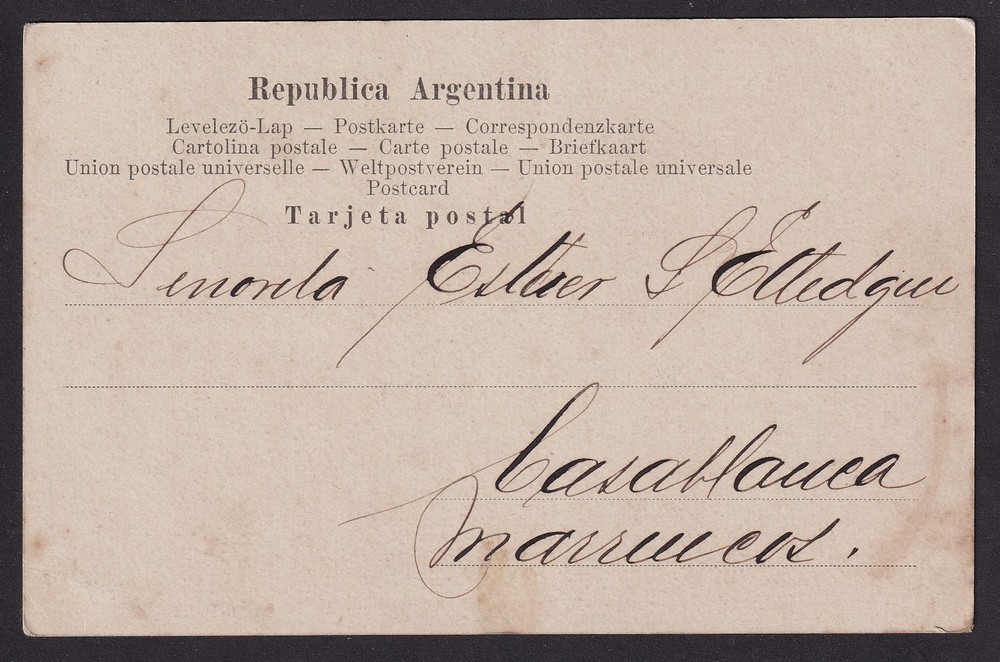 Republica Argentina
Levelezö-Lap — Postkarte — Correspondenzkarte
Cartolina postale — Carte postale — Briefkaart
Union postale universelle — Weltpostverein — Union postale universale
Postcard
Tarjeta postal
Senorita Esther S Ettedgui
Casablanca
Marruecos.